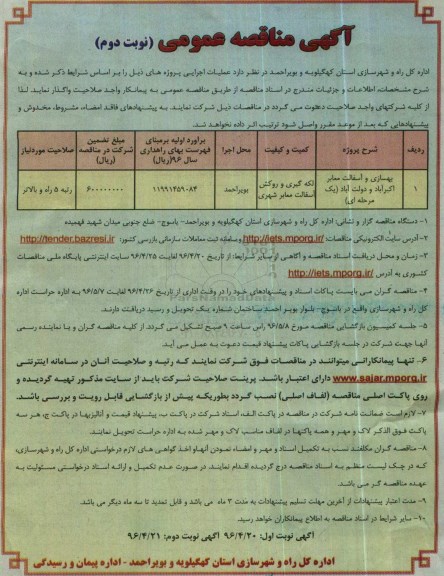 آگهی مناقصه عمومی (نوبت دوم)
اداره کل راه و شهرسازی استان کهگیلویه و بویراحمد در نظر دارد عملیات اجرایی پروژه های ذیل را بر اساس شرایط ذکر شده و به
شرح مشخصات، اطلاعات و جزئیات مندرج در اسناد مناقصه از طریق مناقصه عمومی به پیمانکار واجد صلاحیت واگذار نماید. لذا
از کلیه شرکتهای واجد صلاحیت دعوت می گردد در مناقصات ذیل شرکت نمایند. به پیشنهادهای فاقد امضاء، مشروط، مخدوش و
پیشنهادهایی که بعد از موعد مقرر واصل شود ترتیب اثر داده نخواهد شد.
ردیف | شرح پروژه | کمیت و کیفیت | محل اجرا | برآورد اولیه برمبنای فهرست بهای راهداری سال ۹۶(ریال) | مبلغ تضمین شرکت در مناقصه (ریال) | صلاحیت موردنیاز
۱ | بهسازی و آسفالت معابر اکبرآباد و دولت آباد (یک مرحله ای) | لکه گیری و روکش آسفالت معابر شهری | بویراحمد | ۱۱۹۹۱۴۵۹۰۸۴ | ۶۰۰۰۰۰۰۰۰ | رتبه ۵ راه و بالاتر
۱- دستگاه مناقصه گزار و نشانی: اداره کل راه و شهرسازی استان کهگیلویه و بویراحمد- یاسوج- ضلع جنوبی میدان شهید فهمیده
۲- آدرس سایت الکترونیکی مناقصات: http://iets.mporg.ir/ وسامانه ثبت معاملات سازمان بازرسی کشور: http://tender.bazresi.ir
۳- زمان و محل دریافت اسناد مناقصه و آگاهی از سایر شرایط: از تاریخ ۹۶/۴/۲۰ لغایت ۹۶/۴/۲۵ سایت اینترنتی پایگاه ملی مناقصات
کشوری به آدرس http://iets.mporg.ir/
۴- مناقصه گران می بایست پاکات اسناد و پیشنهادهای خود را در وقت اداری از تاریخ ۹۶/۴/۲۶ لغایت ۹۶/۵/۷ به اداره حراست اداره
کل راه و شهرسازی واقع در یاسوج- بلوار بویراحمد ساختمان شماره یک تحویل و رسید دریافت دارند.
۵- جلسه کمیسیون بازگشایی مناقصه مورخ ۹۶/۵/۸ راس ساعت ۹ صبح تشکیل می گردد. از کلیه مناقصه گران و یا نماینده رسمی
آنها جهت شرکت در جلسه بازگشایی پاکات پیشنهاد قیمت دعوت به عمل می آید.
۶- تنها پیمانکارانی میتوانند در مناقصات فوق شرکت نمایند که رتبه و صلاحیت آنان در سامانه اینترنتی
www.sajar.mporg.ir دارای اعتبار باشد. پرینت صلاحیت شرکت باید از سایت مذکور تهیه گردیده و
روی پاکت اصلی مناقصه (لفاف اصلی) نصب گردد بطوریکه پیش از بازگشایی قابل رویت و بررسی باشد.
۷- لازم است ضمانت نامه شرکت در مناقصه در پاکت الف، اسناد شرکت در پاکت ب، پیشنهاد قیمت و آنالیزبها در پاکت ج، هر سه
پاکت فوق الذکر لاک و مهر و همه پاکتها در لفاف مناسب لاک و مهر شده به اداره حراست تحویل نمایند.
۸- مناقصه گران مکلفند نسبت به تکمیل اسناد و مهر و امضاء نمودن آنها و اخذ گواهی های لازم درخواستی اداره کل راه و شهرسازی،
که در چک لیست منظم به اسناد مناقصه درج گردیده اقدام نمایند. در صورت عدم تکمیل و ارائه اسناد درخواستی مسئولیت به
عهده مناقصه گر می باشد.
۹- مدت اعتبار پیشنهادات از آخرین مهلت تسلیم پیشنهادات به مدت ۳ ماه می باشد و قابل تمدید تا سه ماه دیگر می باشد.
۱۰- سایر شرایط در اسناد مناقصه به اطلاع پیمانکاران خواهد رسید.
آگهی نوبت اول: ۹۶/۴/۲۰ آگهی نوبت دوم: ۹۶/۴/۲۱
اداره کل راه و شهرسازی استان کهگیلویه و بویراحمد - اداره پیمان و رسیدگی